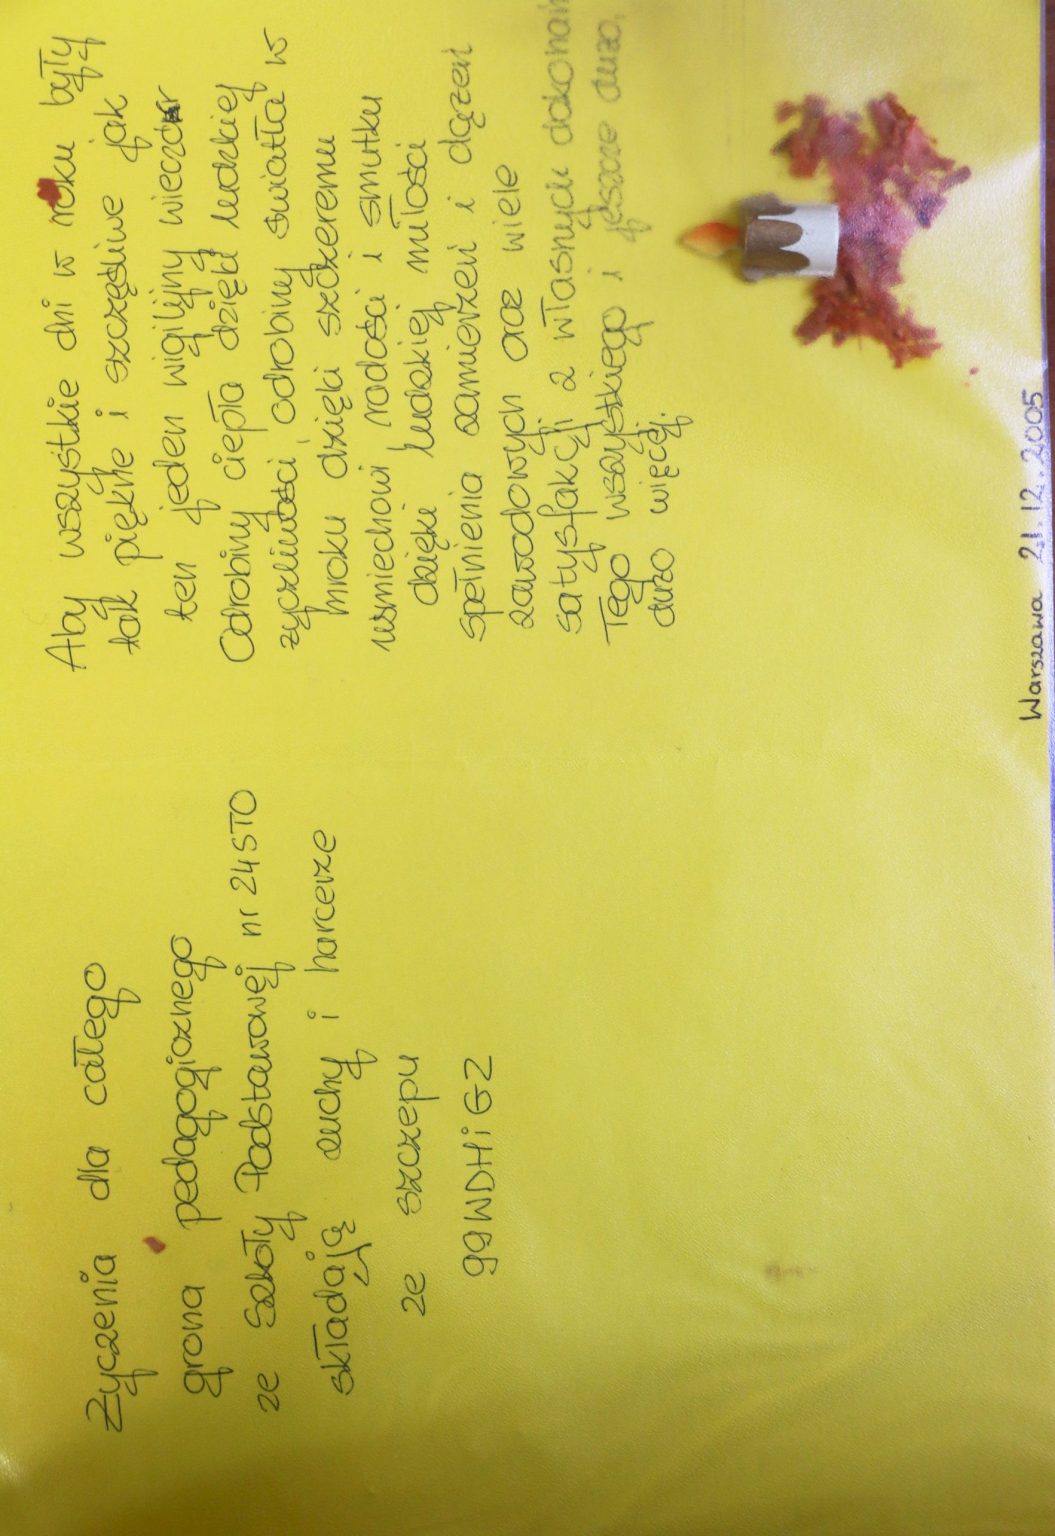 Życzenia dla całego
grona pedagogicznego
ze Szkoły Podstawowej nr 24 STO
składają zuchy i harcerze
ze szczepu
99 WDHiGZ
Aby wszystkie dni w roku były
tak piękne i szczęśliwe jak
ten jeden wigilijny wieczór
Odrobiny ciepła dzięki ludzkiej
życzliwości, odrobiny światła w
mroku dzięki szczeremu
uśmiechowi, radości i smutku
dzięki ludzkiej miłości
spełnienia zamierzeń i dążeń
zawodowych oraz wiele
satysfakcji z własnych dokonań
Tego wszystkiego i jeszcze dużo,
dużo więcej.
Warszawa 21.12.2005